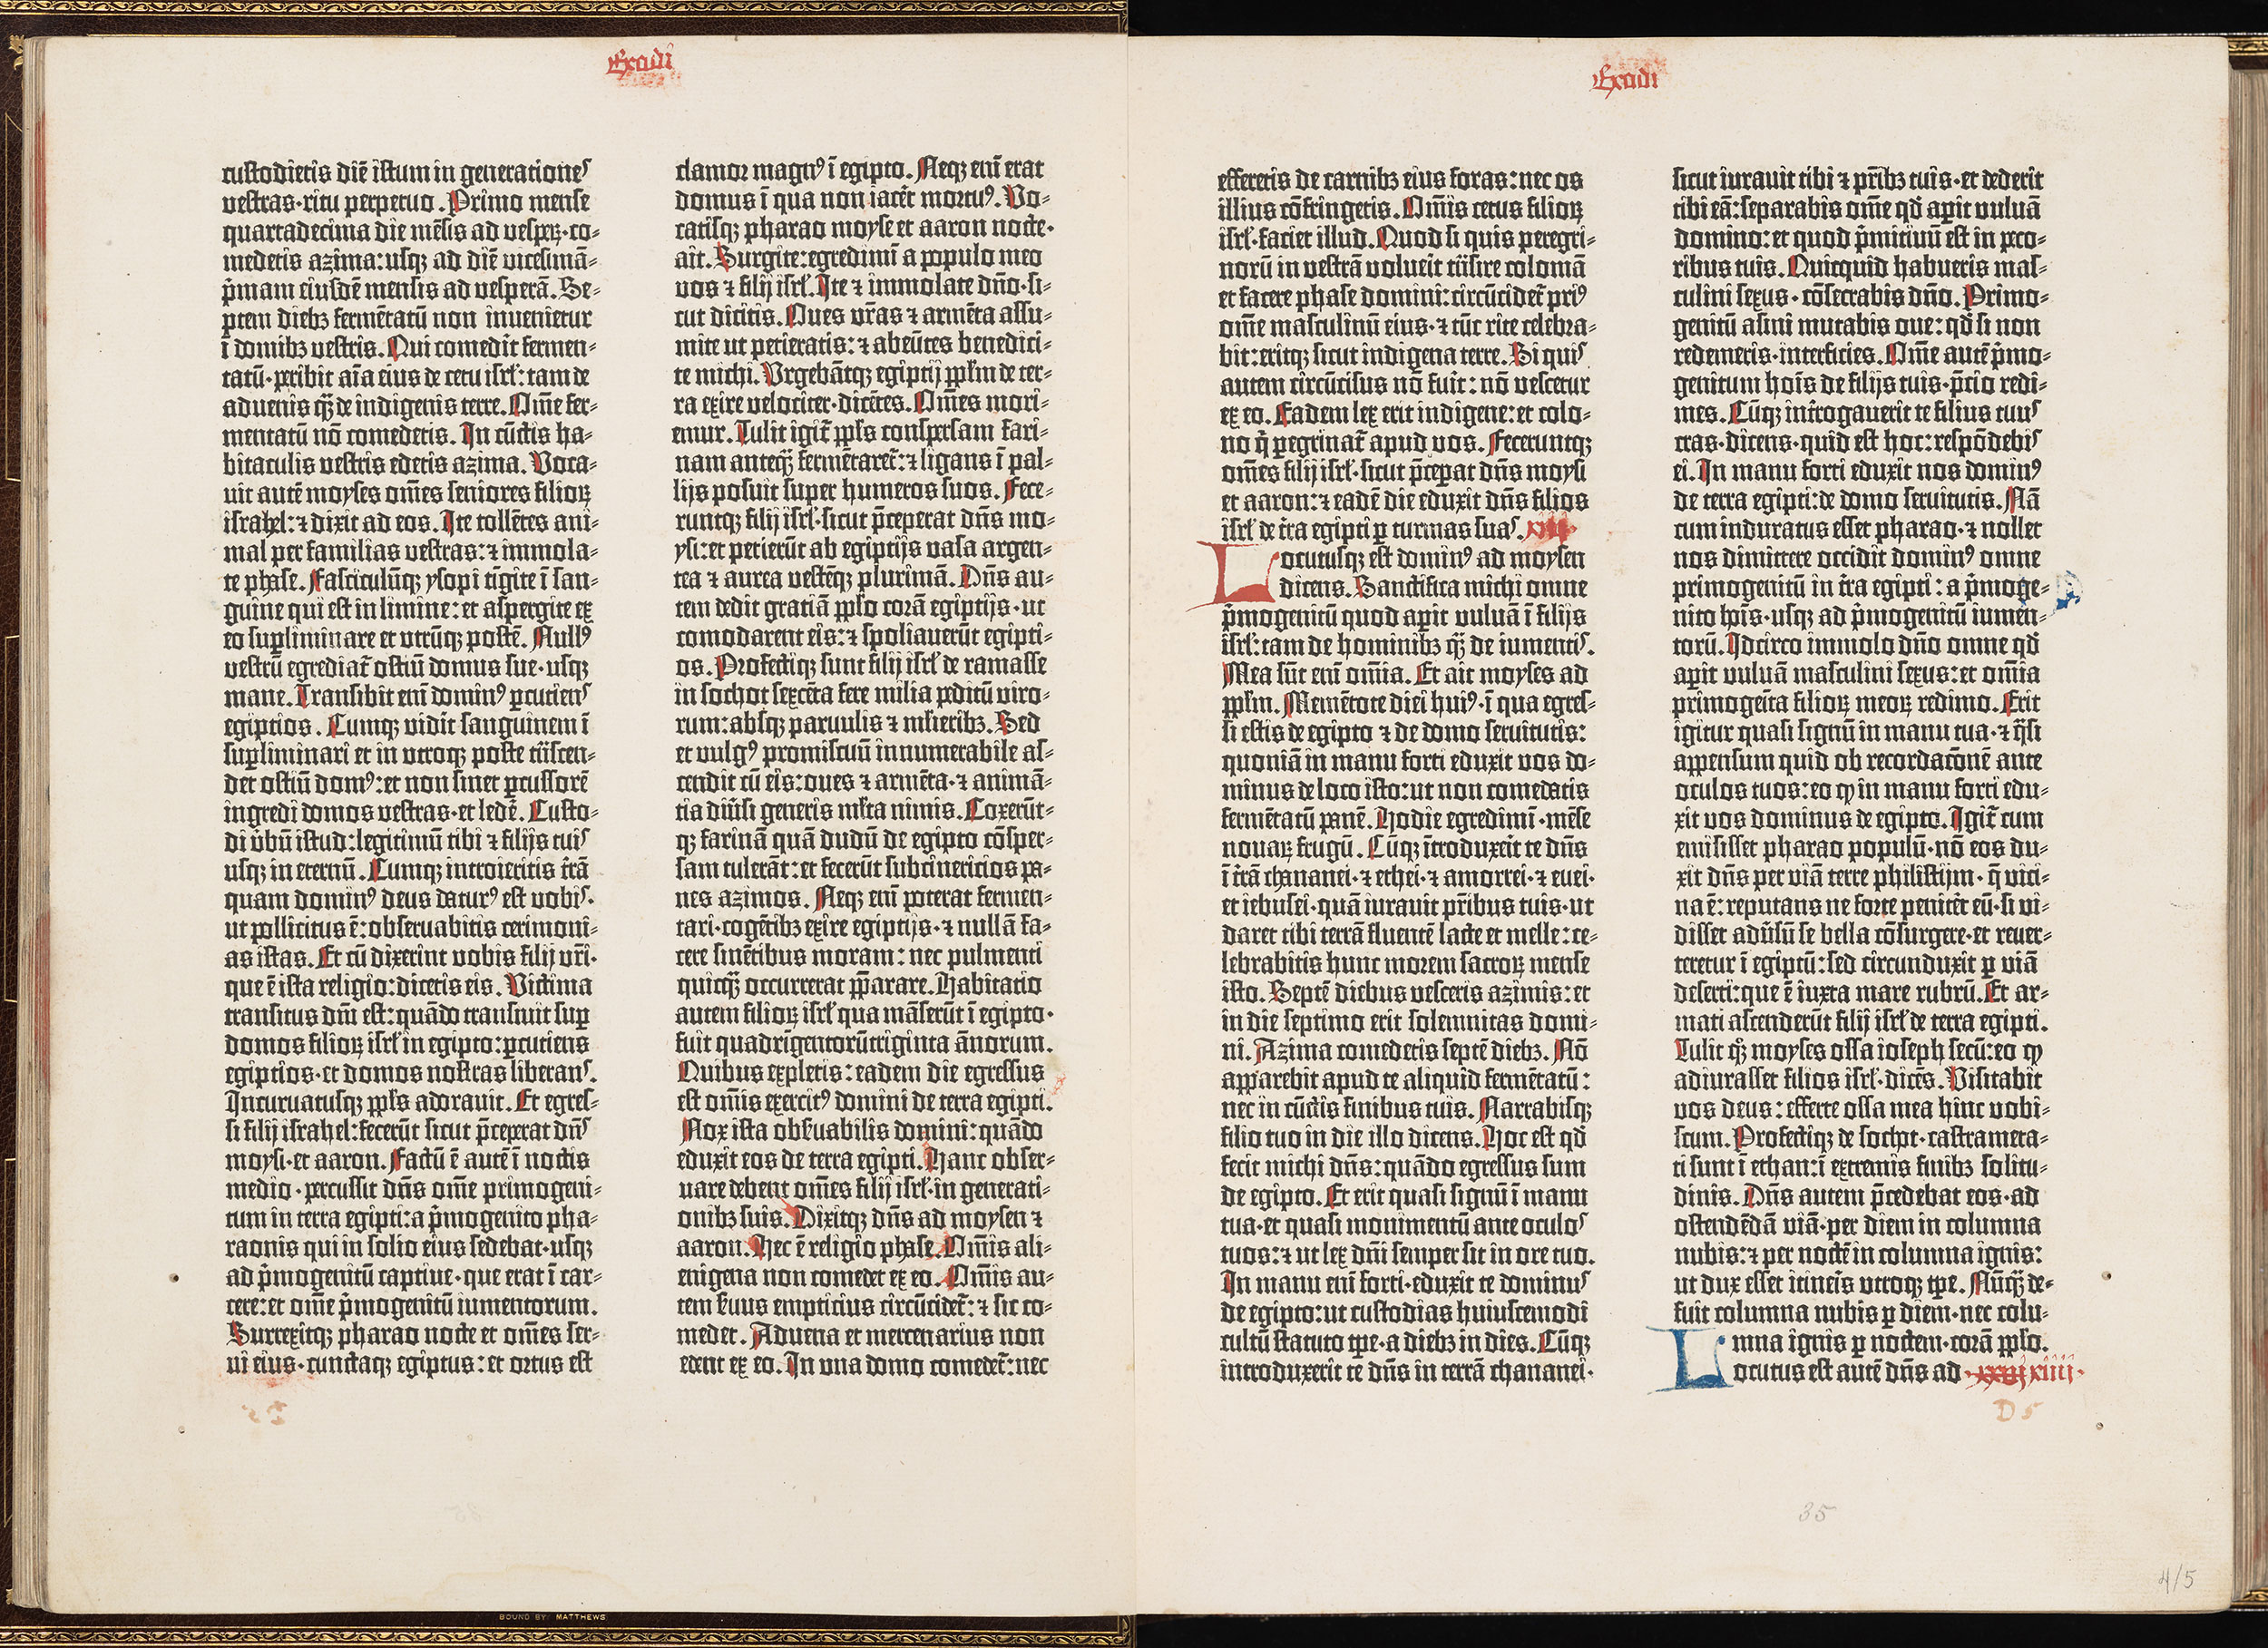 Exodi
custodietis diē istum in generationes
vestras·ritu perpetuo. Primo mense
quartadecima die mēsis ad vesperꝝ·co-
medetis azima: usqꝫ ad diē vicesimā-
p̄mam eiusdē mensis ad vesperā. Se-
ptem diebꝫ fermētatū non invenietur
ī domibꝫ vestris. Qui comedīt fermen-
tatū·peribit aīa eius de cetu isrl̄: tam de
advenis q̄ȝ de indigenis terre. Om̄e fer-
mentatū nō comedetis. In cūctis ha-
bitaculis vestris edetis azima. Voca-
uit autē moyses om̄es seniores filioꝝ
israhel: ⁊ dixit ad eos. Ite tollētes ani-
mal per familias vestras: ⁊ immola-
te phase. Fasciculūqꝫ ysopi tīgite ī san-
guine qui est in limine: et aspergite ex
eo supliminare et vtrūqꝫ postē. Nullꝰ
vestrū egrediat̄ ostiū domus sue·usqꝫ
mane. Transibit enī dominꝰ ꝑcutiens
egiptios. Cumqꝫ vidīt sanguinem ī
supliminari et in vtroqꝫ poste trāscen-
det ostiū domꝰ: et non sinet ꝑcussorē
ingredi domos vestras·et ledē. Custo-
di v̄bū istud: legitimū tibi ⁊ filijs tuis
usqꝫ in eternū. Cumqꝫ introieritis t̄rā
quam dominꝰ deus daturꝰ est vobis·
ut pollicitus ē: observabitis cerimoni-
as istas. Et cū dixerint vobis filij vr̄i·
que ē ista religio: dicetis eis. Victima
transitus dn̄i est: quādo transivit sup
domos filioꝝ isrl̄ in egipto: ꝑcutiens
egiptios·et domos nostras liberans.
Incuruatusqꝫ ppl̄s adorauit. Et egres-
si filij israhel: fecerūt sicut p̄ceperat dn̄s
moysi·et aaron. Factū ē autē ī noctis
medio·percussit dn̄s om̄e primogeni-
tum in terra egipti: a p̄mogenito pha-
raonis qui in solio eius sedebat·usqꝫ
ad p̄mogenitū captive·que erat ī car-
cere: et om̄e p̄mogenitū iumentorum.
Surrexitqꝫ pharao nocte et om̄es ser-
ui eius·cunctaqꝫ egiptus: et ortus est
clamor magnꝰ ī egipto. Neqꝫ enī erat
domus ī qua non iacēt mortuꝰ. Vo-
catisqꝫ pharao moyse et aaron nocte·
ait. Surgite: egredimī a populo meo
vos ⁊ filij isrl̄. Ite ⁊ immolate dn̄o·si-
cut dicitis. Oues vr̄as ⁊ armēta assu-
mite ut petieratis: ⁊ abeūtes benedici-
te michi. Vrgebātqꝫ egiptij ppl̄m de ter-
ra exire velociter·dicētes. Om̄es mori-
emur. Tulit igit̄ ppl̄s conspersam fari-
nam anteq̄ȝ fermētaret̄: ⁊ ligans ī pal-
lijs posuit super humeros suos. Fece-
runtqꝫ filij isrl̄·sicut p̄ceperat dn̄s mo-
ysi: et petierūt ab egiptijs vasa argen-
tea ⁊ aurea vestēqꝫ plurimā. Dn̄s au-
tem dedit gratiā ppl̄o corā egiptijs·ut
comodarent eis: ⁊ spoliauerūt egipti-
os. Profectiqꝫ sunt filij isrl̄ de ramasse
in sochot sexcēta fere milia peditū viro-
rum: absqꝫ paruulis ⁊ ml̄ieribꝫ. Sed
et vulgꝰ promiscuū innumerabile as-
cendit cū eis: oues ⁊ armēta·⁊ animā-
tia diūsi generis ml̄ta nimis. Coxerūt-
qꝫ farinā quā dudū de egipto cōsper-
sam tulerāt: et fecerūt subcinericios pa-
nes azimos. Neqꝫ enī poterat fermen-
tari·cogētibꝫ exire egiptijs·⁊ nullā fa-
cere sinētibus moram: nec pulmenti
quicq̄ȝ occurrerat p̄parare. Habitatio
autem filioꝝ isrl̄ qua māserūt ī egipto·
fuit quadrigentorūtriginta ānorum.
Quibus expletis: eadem die egressus
est om̄is exercitꝰ domini de terra egipti.
Nox ista obs̄uabilis domini: quādo
eduxit eos de terra egipti. Hanc obser-
uare debent om̄es filij isrl̄·in generati-
onibꝫ suis. Dixitqꝫ dn̄s ad moysen ⁊
aaron. Hec ē religio phase. Om̄is ali-
enigena non comedet ex eo. Om̄is au-
tem s̄uus empticius circūcidet̄: ⁊ sic co-
medet. Aduena et mercenarius non
edent ex eo. In vna domo comedet̄: nec
Exodi
efferetis de carnibꝫ eius foras: nec os
illius cōfringetis. Om̄is cetus filioꝝ
isrl̄·faciet illud. Quod si quis peregri-
norū in vestrā volueīt trāsire coloniā
et facere phase domini: circūcidet̄ priꝰ
om̄e masculinū eius·⁊ tūc rite celebra-
bit: eritqꝫ sicut indigena terre. Si quis
autem circūcisus nō fuīt: nō vescetur
ex eo. Eadem lex erit indigene: et colo-
no q̄ ꝑegrinat̄ apud vos. Feceruntqꝫ
om̄es filij isrl̄·sicut p̄ceperat dn̄s moysi
et aaron: ⁊ eadē die eduxit dn̄s filios
isrl̄ de t̄ra egipti ꝑ turmas suas. xiii
Locutusqꝫ est dominꝰ ad moysen
dicens. Sanctifica michi omne
p̄mogenitū quod aperit vuluā ī filijs
isrl̄: tam de hominibꝫ q̄ȝ de iumentis.
Mea sūt enī om̄ia. Et ait moyses ad
ppl̄m. Memētote diei huiꝰ·ī qua egres-
si estis de egipto ⁊ de domo seruitutis:
quoniā in manu forti eduxit vos do-
minus de loco isto: ut non comedatis
fermētatū panē. Hodie egredimī·mēse
nouaꝝ frugū. Cūqꝫ ītroduxeīt te dn̄s
ī t̄rā chananei·⁊ ethei·⁊ amorrei·⁊ euei·
et iebusei·quā iurauit pr̄ibus tuis·ut
daret tibi terrā fluentē lacte et melle: ce-
lebrabitis hunc morem sacroꝝ mense
isto. Septē diebus vesceris azimis: et
in die septimo erit solemnitas domi-
ni. Azima comedetis septē diebꝫ. Nō
apparebit apud te aliquid fermētatū:
nec in cūctis finibus tuis. Narrabisqꝫ
filio tuo in die illo dicens. Hoc est qd̄
fecit michi dn̄s: quādo egressus sum
de egipto. Et erit quasi signū ī manu
tua·et quasi monimentū ante oculos
tuos: ⁊ ut lex dn̄i semper sit in ore tuo.
In manu enī forti·eduxit te dominus
de egipto: ut custodias huiuscemodi
cultū statuto tꝑe·a diebꝫ in dies. Cūqꝫ
introduxerit te dn̄s in terrā chananei·
sicut iurauit tibi ⁊ pr̄ibꝫ tuis·et dederit
tibi eā: separabis om̄e qd̄ aperit vuluā
domino: et quod p̄mitiuū est in peco-
ribus tuis. Quicquid habueris mas-
culini sexus·cōsecrabis dn̄o. Primo-
genitū asini mutabis oue: qd̄ si non
redemeris·interficies. Om̄e autē p̄mo-
genitum hoīs de filijs tuis·p̄cio redi-
mes. Cūqꝫ int̄rogauerit te filius tuus
cras·dicens·quid est hoc: respōdebis
ei. In manu forti eduxit nos dominꝰ
de terra egipti: de domo seruitutis. Nā
cum induratus esset pharao·⁊ nollet
nos dimittere occidit dominꝰ omne
primogenitū in t̄ra egipti: a p̄moge-
nito hoīs·usqꝫ ad p̄mogenitū iumen-
torū. Idcirco immolo dn̄o omne qd̄
aperit vuluā masculini sexus: et om̄ia
primogeīta filioꝝ meoꝝ redimo. Erit
igitur quasi signū in manu tua·⁊ q̄si
appensum quid ob recordac̄onē ante
oculos tuos: eo ꝙ in manu forti edu-
xit vos dominus de egipto. Igit̄ cum
emisisset pharao populū·nō eos du-
xit dn̄s per viā terre philistijm·q̄ vici-
na ē: reputans ne forte penitēt eū·si vi-
disset aduīsū se bella cōsurgere·et reuer-
teretur ī egiptū: sed circunduxit ꝑ viā
deserti: que ē iuxta mare rubrū. Et ar-
mati ascenderūt filij isrl̄ de terra egipti.
Tulit qȝ moyses ossa ioseph secū: eo ꝙ
adiurasset filios isrl̄·dicēs. Visitabit
vos deus: efferte ossa mea hinc vobi-
scum. Profectiqꝫ de sochot·castrameta-
ti sunt ī ethan: ī extremis finibꝫ solitu-
dinis. Dn̄s autem p̄cedebat eos·ad
ostendēdā viā·per diem in columna
nubis: ⁊ per noctē in columna ignis:
ut dux esset itineīs vtroqꝫ tꝑe. Nūq̄ȝ de-
fuit columna nubis ꝑ diem·nec colu-
mna ignis ꝑ noctem·corā ppl̄o.
Locutus est autē dn̄s ad xiiii·
D 5
35
4/5
BOUND BY MATTHEWS